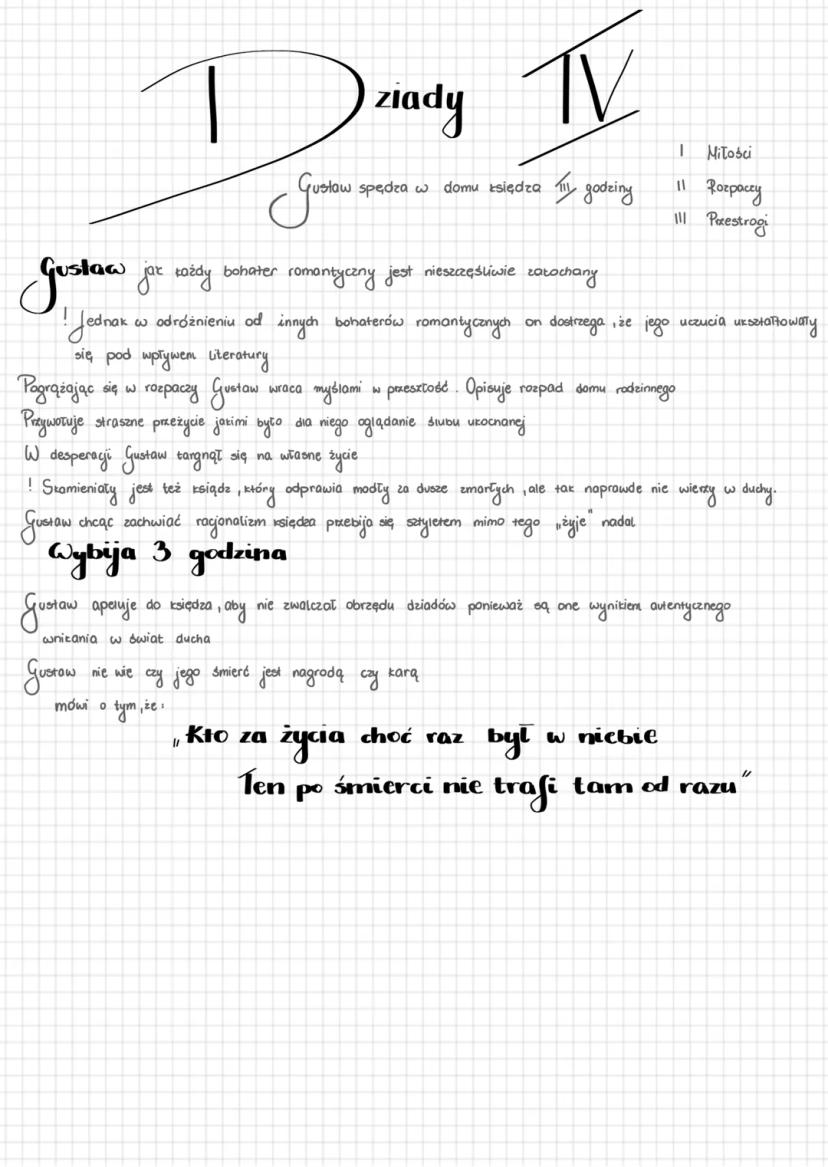 Dziady IV
I Miłości
Gustaw spędza w domu księdza III godziny
II Rozpaczy
III Przestrogi
Gustaw jak każdy bohater romantyczny jest nieszczęśliwie zakochany
! Jednak w odróżnieniu od innych bohaterów romantycznych on dostrzega, że jego uczucia ukształtowały
się pod wpływem literatury
Pogrążając się w rozpaczy Gustaw wraca myślami w przeszłość. Opisuje rozpad domu rodzinnego
Przywołuje straszne przeżycie jakimi było dla niego oglądanie ślubu ukochanej
W desperacji Gustaw targnął się na własne życie
! Skamieniały jest też ksiądz, który odprawia modły za dusze zmarłych, ale tak naprawde nie wierzy w duchy.
Gustaw chcąc zachwiać racjonalizm księdza przebija się sztyletem mimo tego „żyje" nadal
Wybija 3 godzina
Gustaw apeluje do księdza, aby nie zwalczał obrzędu dziadów ponieważ są one wynikiem autentycznego
wnikania w świat ducha
Gustaw nie wie czy jego śmierć jest nagrodą czy karą
mówi o tym, że:
„Kto za życia choć raz był w niebie
Ten po śmierci nie trafi tam od razu"